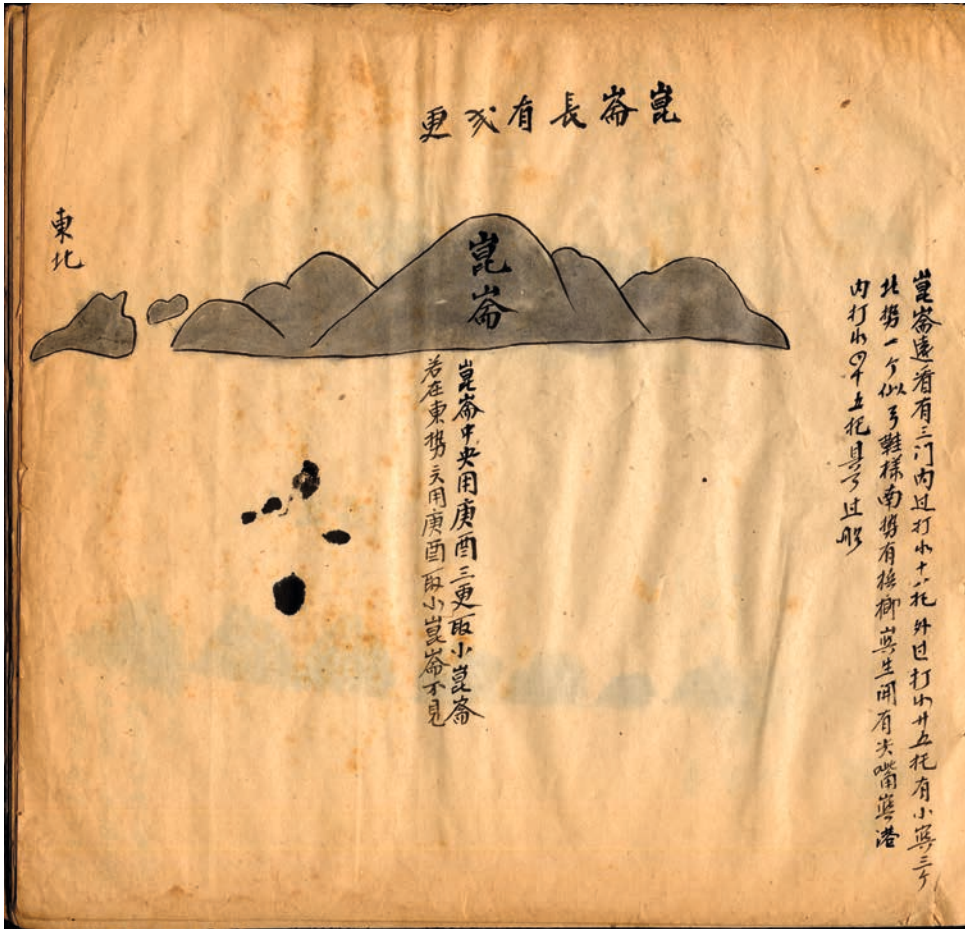 崑崙長有弍更
崑崙遠看有三门内过打水十八托外过打水廿五托有小㠘三个
北㔟一个似弓鞋様南㔟有梹榔㠘生開有尖嘴㠘港
内打水四十五托具可过船
崑崙
崑崙中央用庚酉三更取小崑崙
若在東㔟亦用庚酉取小崑崙不見
東北